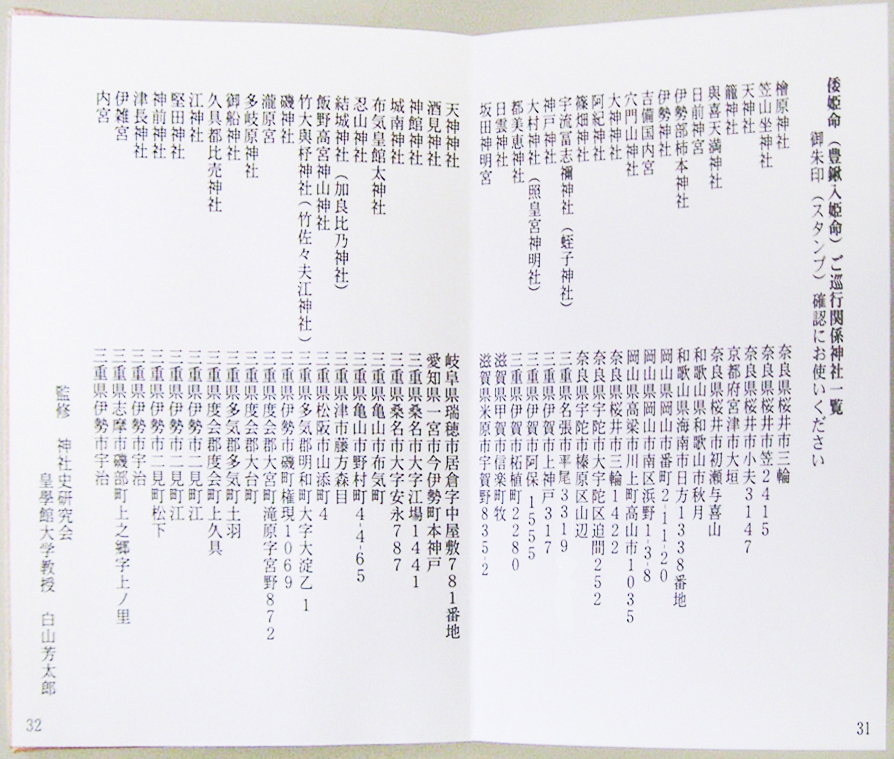 倭姫命（豊鍬入姫命）ご巡行関係神社一覧
御朱印（スタンプ）確認にお使いください
檜原神社　奈良県桜井市三輪
笠山坐神社　奈良県桜井市笠2415
天神社　奈良県桜井市小夫3147
籠神社　京都府宮津市大垣
與喜天満神社　奈良県桜井市初瀬与喜山
日前神宮　和歌山県和歌山市秋月
伊勢部柿本神社　和歌山県海南市日方1338番地
伊勢神社　岡山県岡山市番町2-11-20
吉備国内宮　岡山県岡山市南区浜野1-3-8
穴門山神社　岡山県高梁市川上町高山市1035
大神神社　奈良県桜井市三輪1422
阿紀神社　奈良県宇陀市大宇陀区迫間252
篠畑神社　奈良県宇陀市榛原区山辺
宇流冨志禰神社（蛭子神社）　三重県名張市平尾3319
神戸神社　三重県伊賀市上神戸317
大村神社（照皇宮神明社）　三重県伊賀市阿保1555
都美恵神社　三重県伊賀市柘植町2280
日雲神社　滋賀県甲賀市信楽町牧
坂田神明宮　滋賀県米原市宇賀野835-2
31
天神神社　岐阜県瑞穂市居倉字中屋敷781番地
酒見神社　愛知県一宮市今伊勢町本神戸
神館神社　三重県桑名市大字江場1441
城南神社　三重県桑名市大字安永787
布気皇館太神社　三重県亀山市布気町
忍山神社　三重県亀山市野村町4-4-65
結城神社（加良比乃神社）　三重県津市藤方森目
飯野高宮神山神社　三重県松阪市山添町4
竹大與杼神社（竹佐々夫江神社）　三重県多気郡明和町大字大淀乙1
磯神社　三重県伊勢市磯町権現1069
瀧原宮　三重県度会郡大宮町滝原字宮野872
多岐原神社　三重県度会郡大台町
御船神社　三重県多気郡多気町土羽
久具都比売神社　三重県度会郡度会町上久具
江神社　三重県伊勢市二見町江
堅田神社　三重県伊勢市二見町江
神前神社　三重県伊勢市二見町松下
津長神社　三重県伊勢市宇治
伊雑宮　三重県志摩市磯部町上之郷字上ノ里
内宮　三重県伊勢市宇治
監修　神社史研究会
皇學館大学教授　白山芳太郎
32